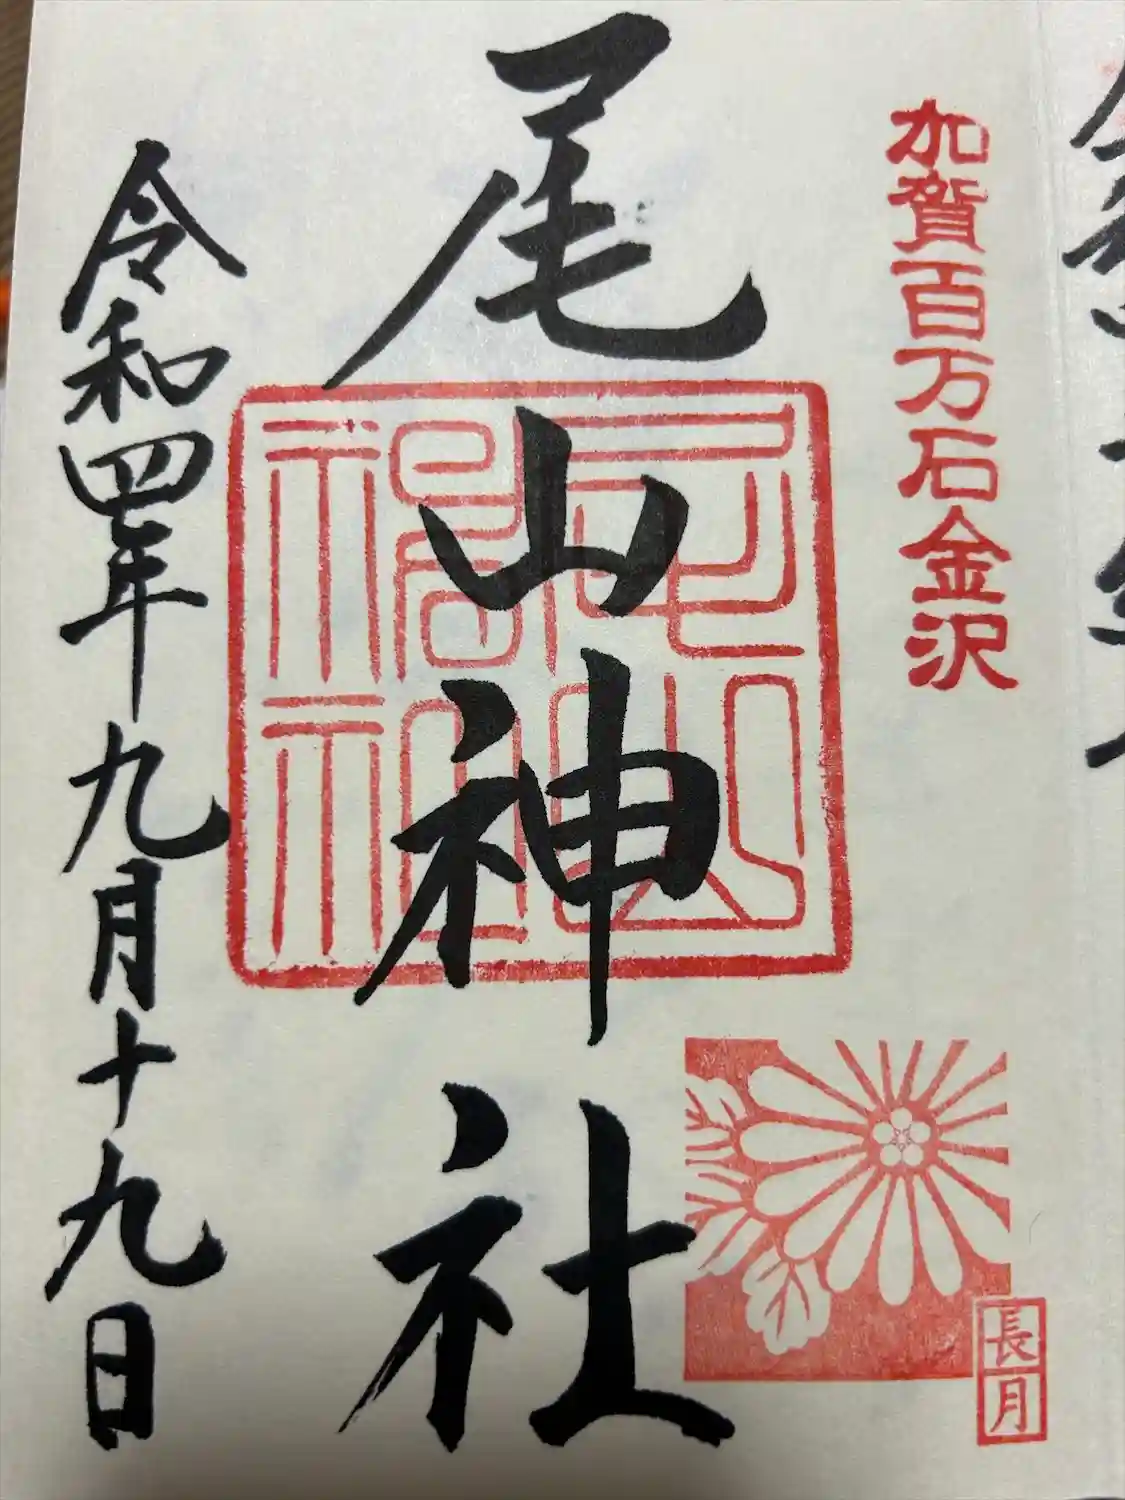 加賀百万石金沢
長月
尾山神社
尾山神社
令和四年九月十九日